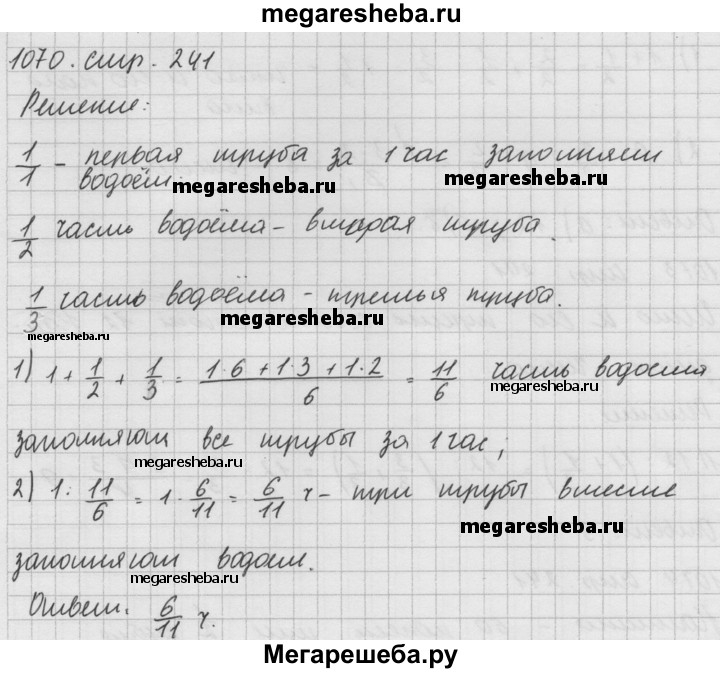 megaresheba.ru
1070. стр. 241
Решение:
1/1 - первая труба за 1 час заполняет
водоём.
megaresheba.ru megaresheba.ru
1/2 часть водоёма - вторая труба.
1/3 часть водоёма - третья труба.
megaresheba.ru megaresheba.ru
1) 1 + 1/2 + 1/3 = (1·6 + 1·3 + 1·2)/6 = 11/6 часть водоема
megaresheba.ru
заполняют все трубы за 1 час;
megaresheba.ru
2) 1 : 11/6 = 1 · 6/11 = 6/11 ч - три трубы вместе
megaresheba.ru
заполняют водоем.
megaresheba.ru
Ответ: 6/11 ч.
Мегарешеба.ру